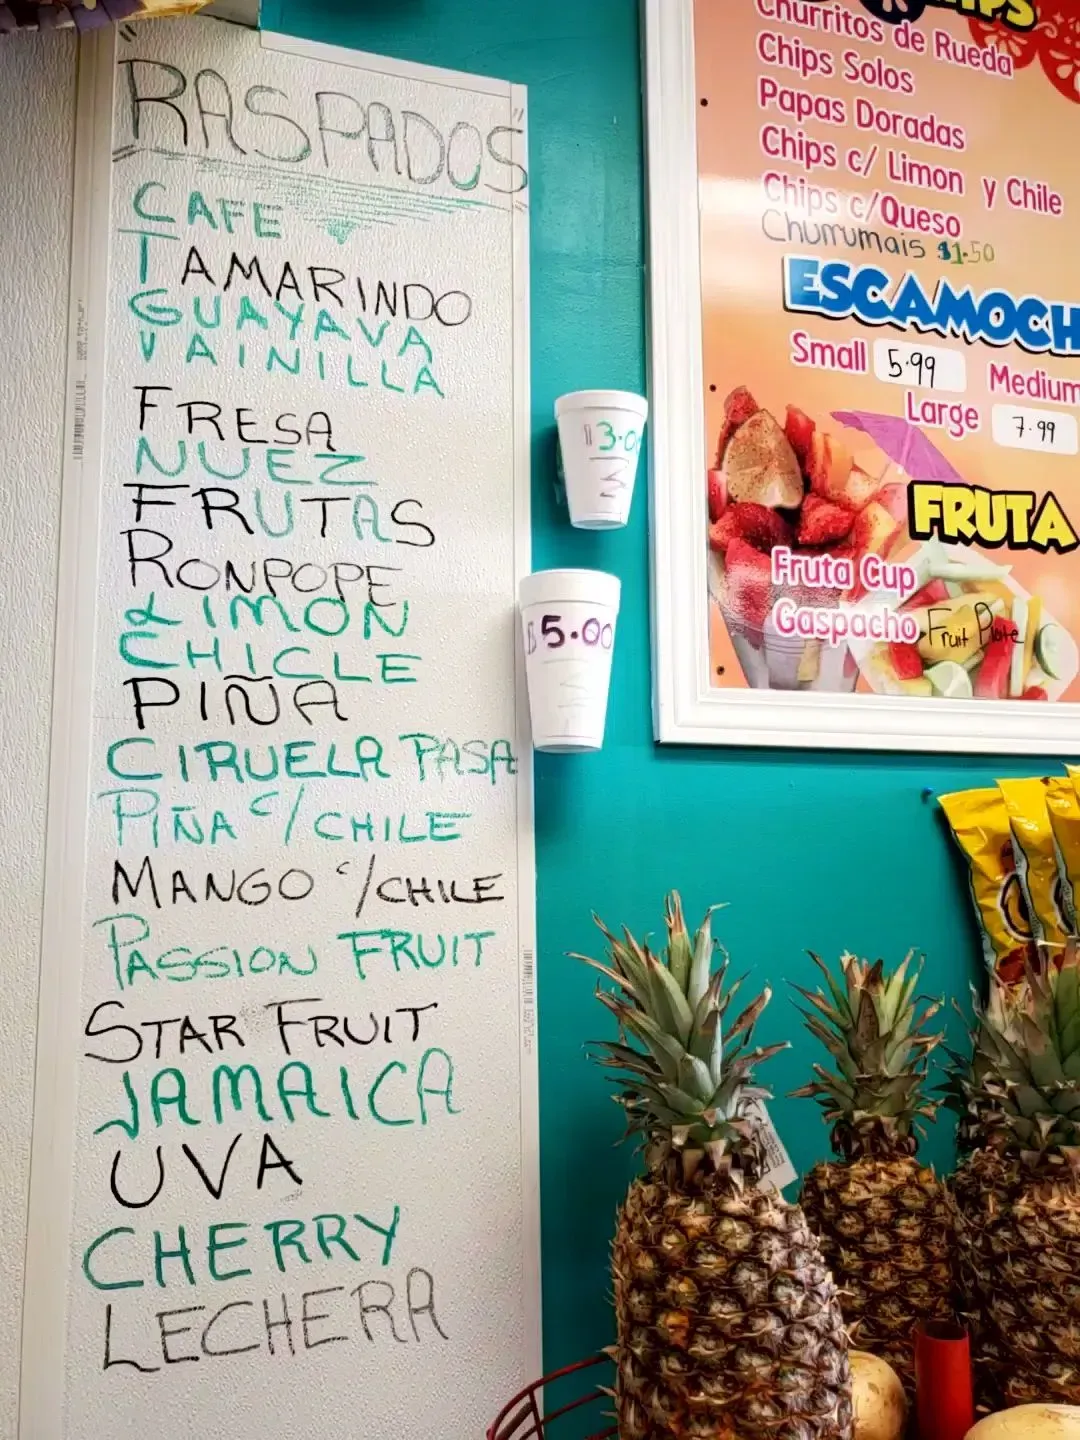 RASPADOS
CAFE
TAMARINDO
GUAYAVA
VAINILLA
FRESA
NUEZ
FRUTAS
RONPOPE
LIMON
CHICLE
PIÑA
CIRUELA PASA
PIÑA c/ CHILE
MANGO c/ CHILE
PASSION FRUIT
STAR FRUIT
JAMAICA
UVA
CHERRY
LECHERA
$5.00
Churritos de Rueda
Chips Solos
Papas Doradas
Chips c/ Limon y Chile
Chips c/Queso
Churrumais $1.50
ESCAMOCH
Small 5.99 Medium
Large 7.99
FRUTA
Fruta Cup
Gaspacho Fruit Plate